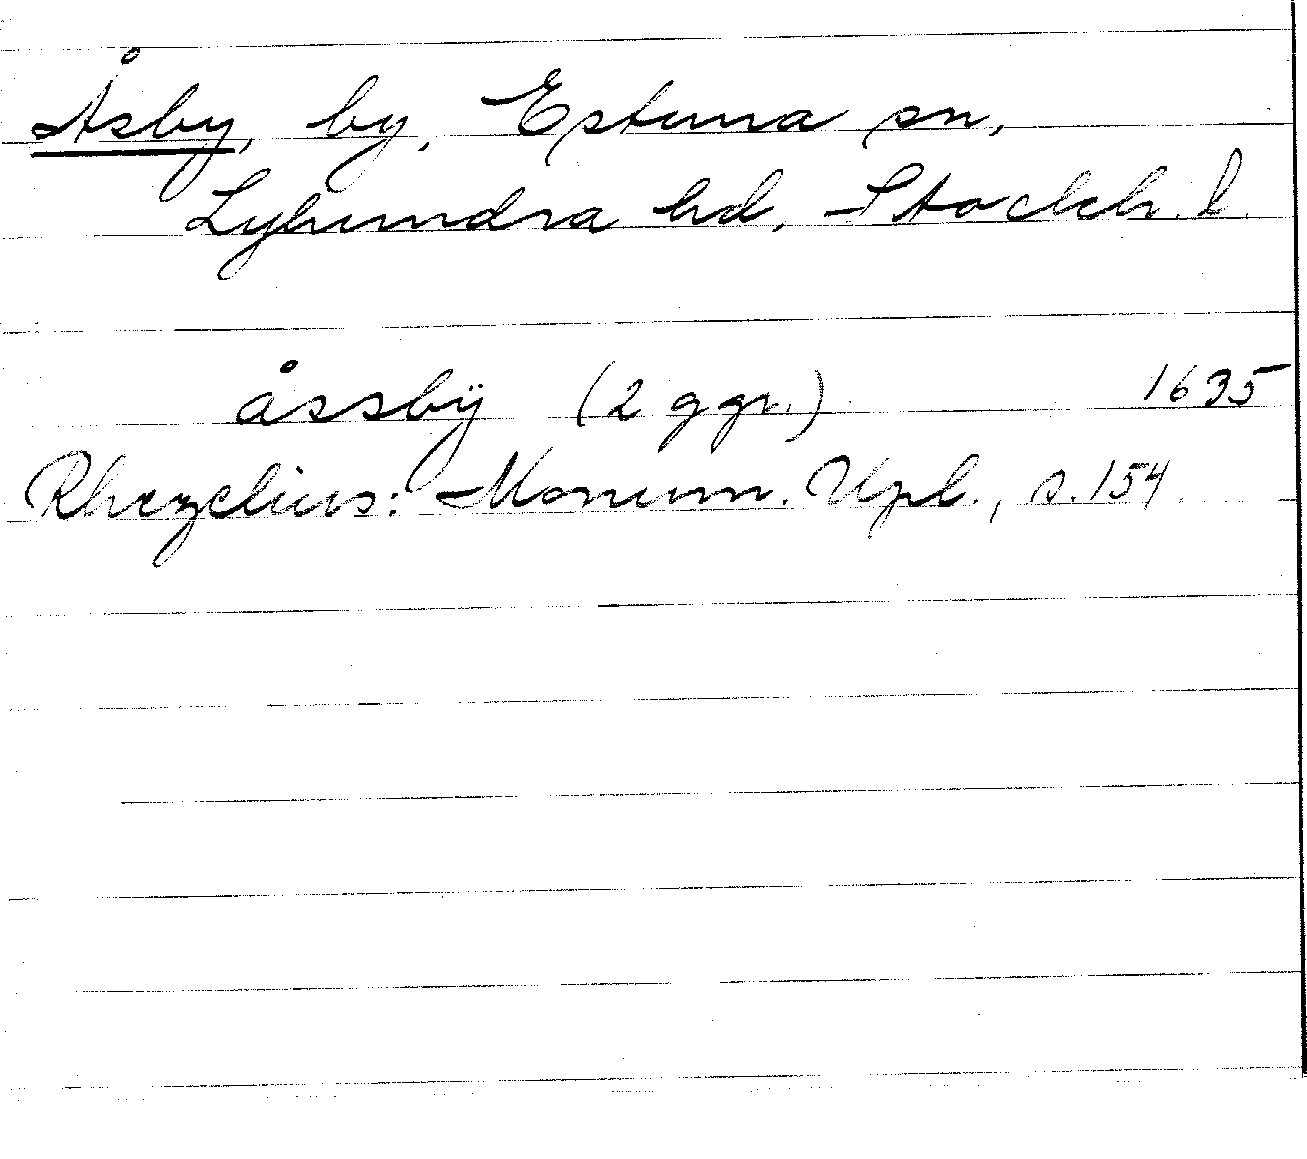 Åsby, by, Estuna sn,
Lyhundra hd, Stockh. l.
åssbÿ (2 ggr.) 1635
Rhezelius: Monum. Upl., s. 154